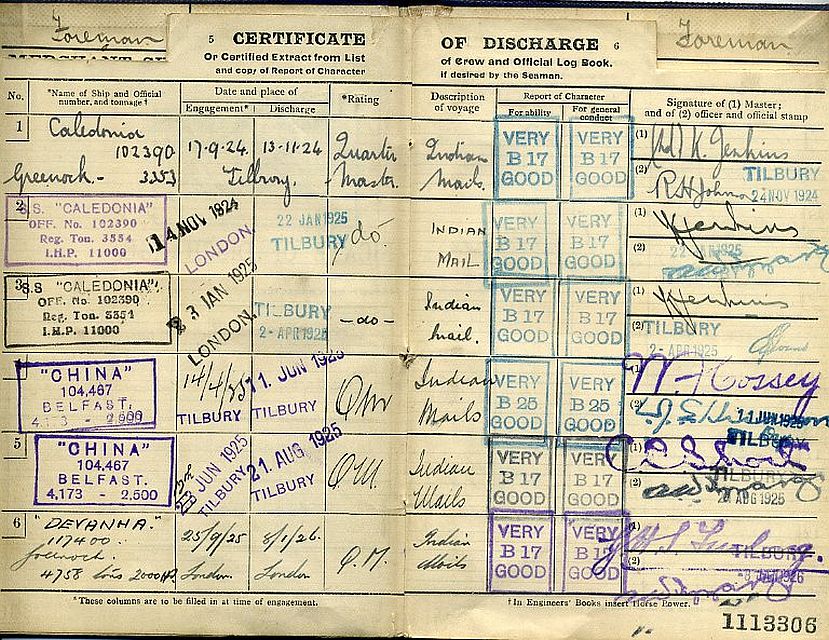 Foreman
Foreman
5 CERTIFICATE
Or Certified Extract from List
and copy of Report of Character
OF DISCHARGE 6
of Crew and Official Log Book.
if desired by the Seaman.
No.
*Name of Ship and Official
number, and tonnage†
Date and place of
Engagement*
Discharge
*Rating
Description
of voyage
Report of Character
For ability
For general
conduct
Signature of (1) Master;
and of (2) officer and official stamp
1
Caledonia
102390
Greenock. - 3353
17.9.24. 13.11.24
Tilbury.
Quarter
Master.
Indian
Mails.
VERY
B 17
GOOD
VERY
B 17
GOOD
(1)
K. Jenkins
(2)
TILBURY
24 NOV 1924
2
S.S. "CALEDONIA"
OFF. No. 102390
Reg. Ton. 3554
I.H.P. 11000
14 NOV 1924
LONDON.
22 JAN 1925
TILBURY
do
INDIAN
MAIL
VERY
B 17
GOOD
VERY
B 17
GOOD
(1)
Jenkins
(2)
3
S.S "CALEDONIA"
OFF. No 102390
Reg. Ton. 3354
I.H.P. 11000
23 JAN 1925
LONDON.
TILBURY
2 - APR 1925
- do -
Indian
Mail.
VERY
B 17
GOOD
VERY
B 17
GOOD
(1)
Jenkins
(2)
TILBURY
2 - APR 1925
"CHINA"
104,467
BELFAST.
4,173 - 2,500
14/4/25
TILBURY
11. JUN 1925
TILBURY
QM
Indian
Mails
VERY
B 25
GOOD
VERY
B 25
GOOD
(1)
(2)
11 JUN 1925
TILBURY
5
"CHINA"
104,467
BELFAST.
4,173 - 2,500
JUN 1925
TILBURY
21. AUG. 1925
TILBURY
QM.
Indian
Mails
VERY
B 17
GOOD
VERY
B 17
GOOD
(1)
(2)
TILBURY
AUG 1925
6
"DEVANHA."
117400.
Greenock.
4758 tons 2000HP
25/9/25
London.
8/1/26.
London
Q.M.
Indian
Mails
VERY
B 17
GOOD
VERY
B 17
GOOD
(1)
(2)
TILBURY
*These columns are to be filled in at time of engagement.
†In Engineers' Books insert Horse Power.
1113306